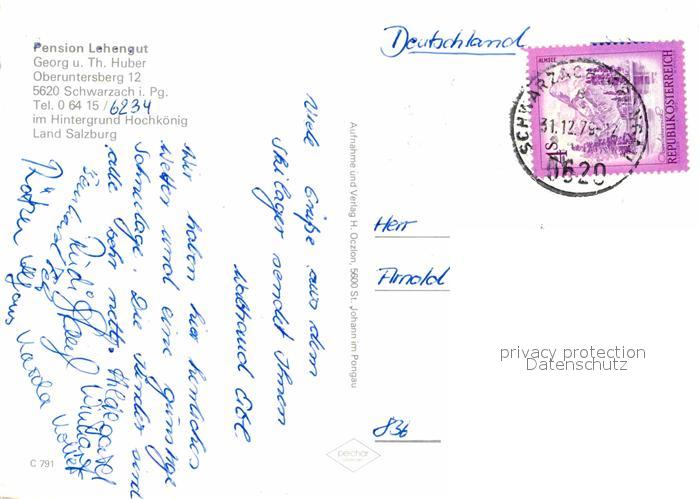 Pension Lehengut
Georg u. Th. Huber
Oberuntersberg 12
5620 Schwarzach i. Pg.
Tel. 0 64 15 / 6234
im Hintergrund Hochkönig
Land Salzburg
Viele Grüße aus dem
Skilager sendet Ihnen
Waltraud
Wir haben hier herrliches
Wetter und eine günstige
Schneelage. Die Kinder sind
alle sehr nett.
C 791
Aufnahme und Verlag H. Oczlon, 5600 St. Johann im Pongau
pechar
Deutschland
ALMSEE
REPUBLIK ÖSTERREICH
SCHWARZACH IM PONGAU
31.12.79-12
5620
Herr
Arnold
836
privacy protection
Datenschutz